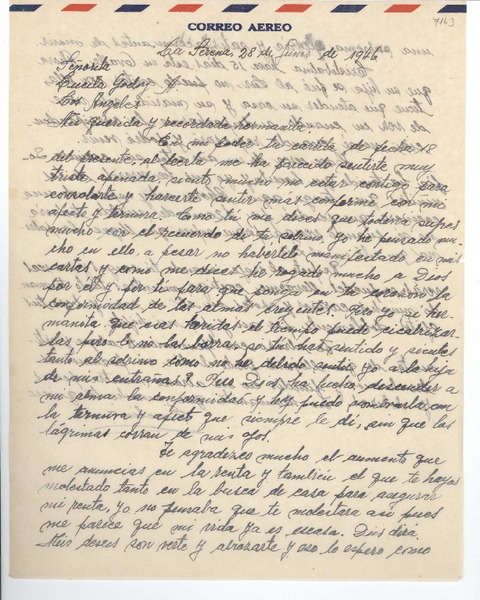 CORREO AEREO
7163
La Serena, 28 de Junio de 1946
Señorita
Lucila Godoy
Los Angeles
Mi querida y recordada hermanita:
En mi poder tu cartita de fecha 18
del presente, al leerla me ha parecido sentirte muy
triste apenada siento mucho no estar contigo para
consolarte y hacerte sentir mas conforme con mi
afecto y ternura. Como tu me dices que todavia sufres
mucho con el recuerdo de tu sobrino, yo he pensado mu-
cho en ello, a pesar no habertelo manifestado en mis
cartas y como me dices he rogado mucho a Dios
por el y por ti para que ponga en tu corazon la
conformidad de las almas creyentes. Pero yo se her-
manita que esas heridas el tiempo puede cicatrizar-
las pero no las borra, si tu has sentido y sientes
tanto al sobrino como no he debido sentir yo a la hija
de mis entrañas? Pero Dios ha hecho descender a
mi alma la conformidad y hoy puedo nombrarla con
la ternura y afecto que siempre le di, sin que las
lágrimas corran de mis ojos.
Te agradezco mucho el aumento que
me anuncias en la renta y tambien el que te hayas
molestado tanto en la busca de casa para asegurar
mi renta, yo no pensaba que te molestara asi pues
me parece que mi vida ya es escasa. Dios dirá.
Mis deseos son verte y abrazarte y eso lo espero como